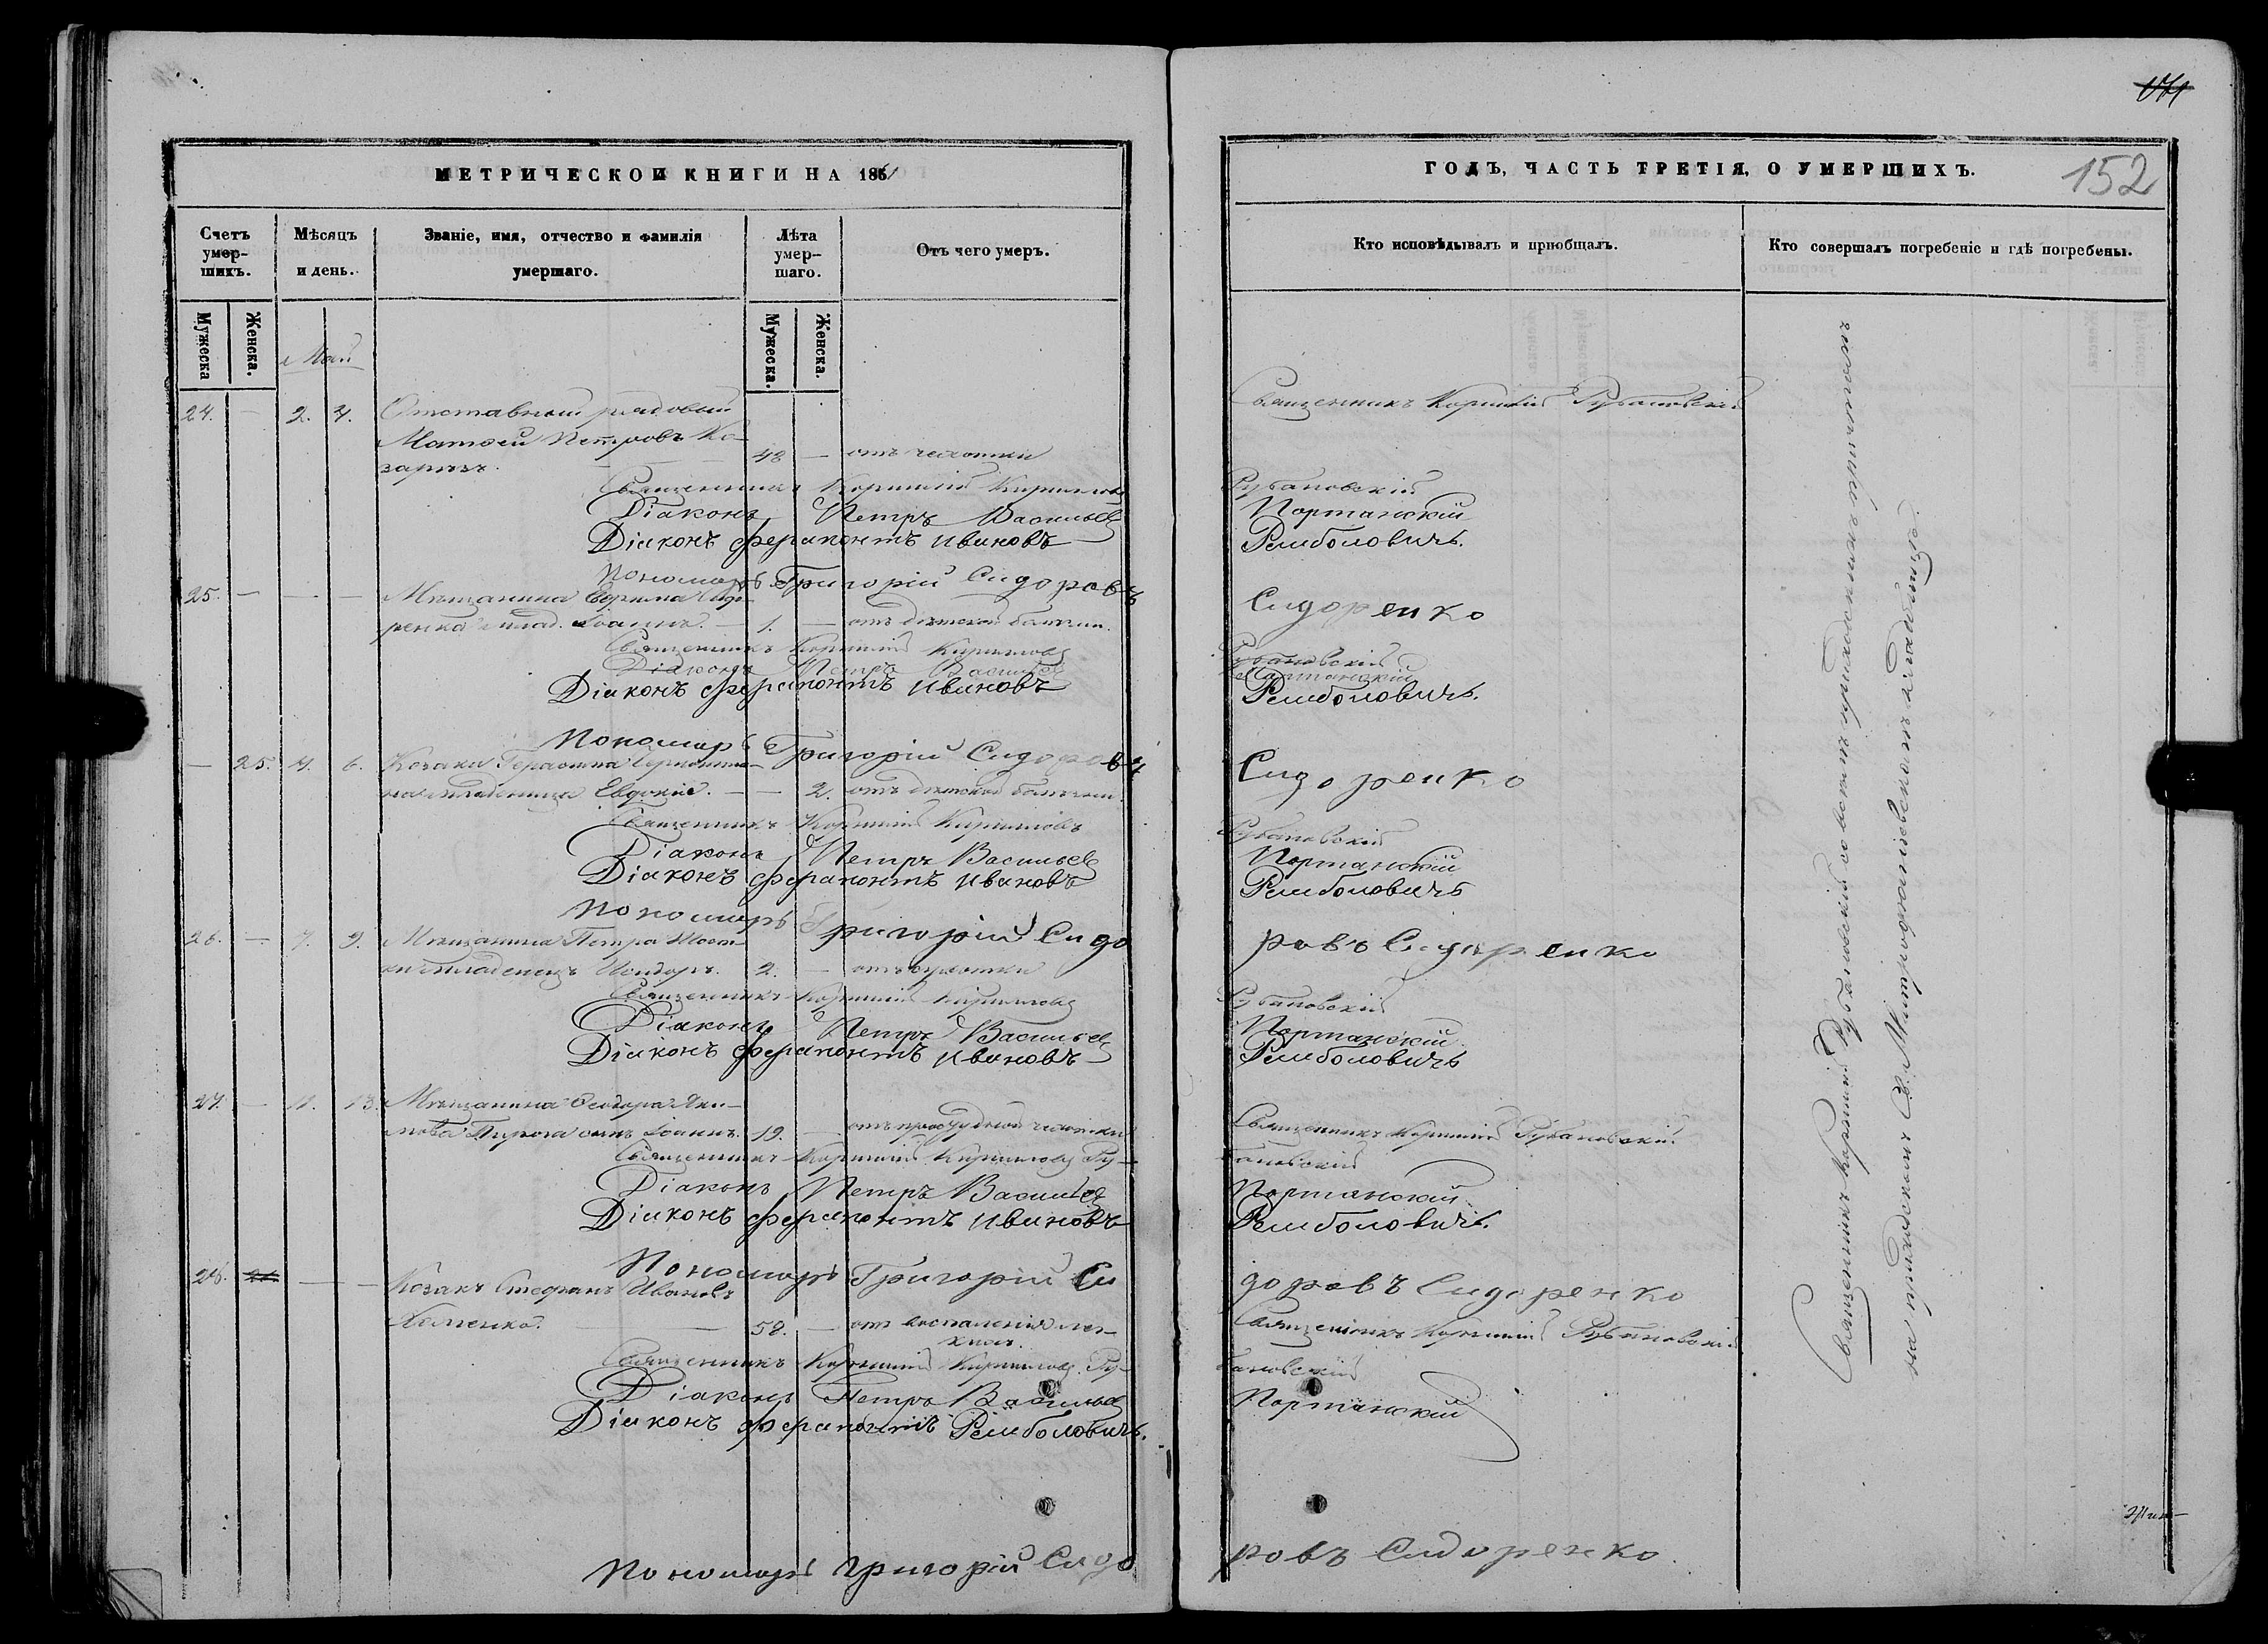 171
МЕТРИЧЕСКОЙ КНИГИ НА 1861
ГОДЪ, ЧАСТЬ ТРЕТІЯ, О УМЕРШИХЪ.
152
Счетъ умер-шихъ.
Мѣсяцъ и день.
Званіе, имя, отчество и фамилія умершаго.
Лѣта умер-шаго.
Отъ чего умеръ.
Кто исповѣдывалъ и пріобщалъ.
Кто совершалъ погребеніе и гдѣ погребены.
Мужеска
Женска.
Май
Мужеска.
Женска.
24. — 2. 4. Отставный рядовый
Священникъ Корнилій Рубановскій
Матѳей Петровъ Ко-
зарязъ. 48 — отъ чахотки
Священникъ Корнилій Кириловъ Рубановскій
Діаконъ Петръ Васильевъ Портанскій
Діаконъ Ферапонтъ Ивановъ Ремболовичъ.
Пономарь Григорій Сидоровъ Сидоренко
25. — — — Мѣщанина Ефрема Сидо-
ренка млад. Іоаннъ. — 1. — отъ дѣтской болѣзни.
Священникъ Корнилій Кириловъ Рубановскій
Діаконъ Петръ Васильевъ Портанскій
Діаконъ Ферапонтъ Ивановъ Ремболовичъ.
Пономарь Григорій Сидоровъ Сидоренко
— 25. 4. 6. Козака Герасима
младеница Евдокія. — — 2. отъ дѣтской болѣзни.
Священникъ Корнилій Кириловъ Рубановскій
Діаконъ Петръ Васильевъ Портанскій
Діаконъ Ферапонтъ Ивановъ Ремболовичъ
Пономарь Григорій Сидоровъ Сидоренко
26. — 7. 9. Мѣщанина Петра
младенецъ Исидоръ. 2. — отъ сухотки
Священникъ Корнилій Кириловъ Рубановскій
Діаконъ Петръ Васильевъ Портанскій
Діаконъ Ферапонтъ Ивановъ Ремболовичъ
27. — 11. 13. Мѣщанина Ѳеодора Яки-
мова Пирога сынъ Іоаннъ. 19. — отъ простудной чахотки
Священникъ Корнилій Рубановскій
Священникъ Корнилій Кириловъ Рубановскій
Діаконъ Петръ Васильевъ Портанскій
Діаконъ Ферапонтъ Ивановъ Ремболовичъ.
Пономарь Григорій Сидоровъ Сидоренко
28. — — Козакъ Стефанъ Ивановъ
Хоменко. — 58. — отъ воспаленія лег-
кихъ.
Священникъ Корнилій Рубановскій
Священникъ Корнилій Кириловъ Рубановскій
Діаконъ Петръ Васильевъ Портанскій
Діаконъ Ферапонтъ Ремболовичъ.
Пономарь Григорій Сидоровъ Сидоренко.
Священникъ Корнилій Рубановскій со всѣмъ приходскимъ причтомъ
на приходскомъ Св. Митрофаніевскомъ кладбищѣ.